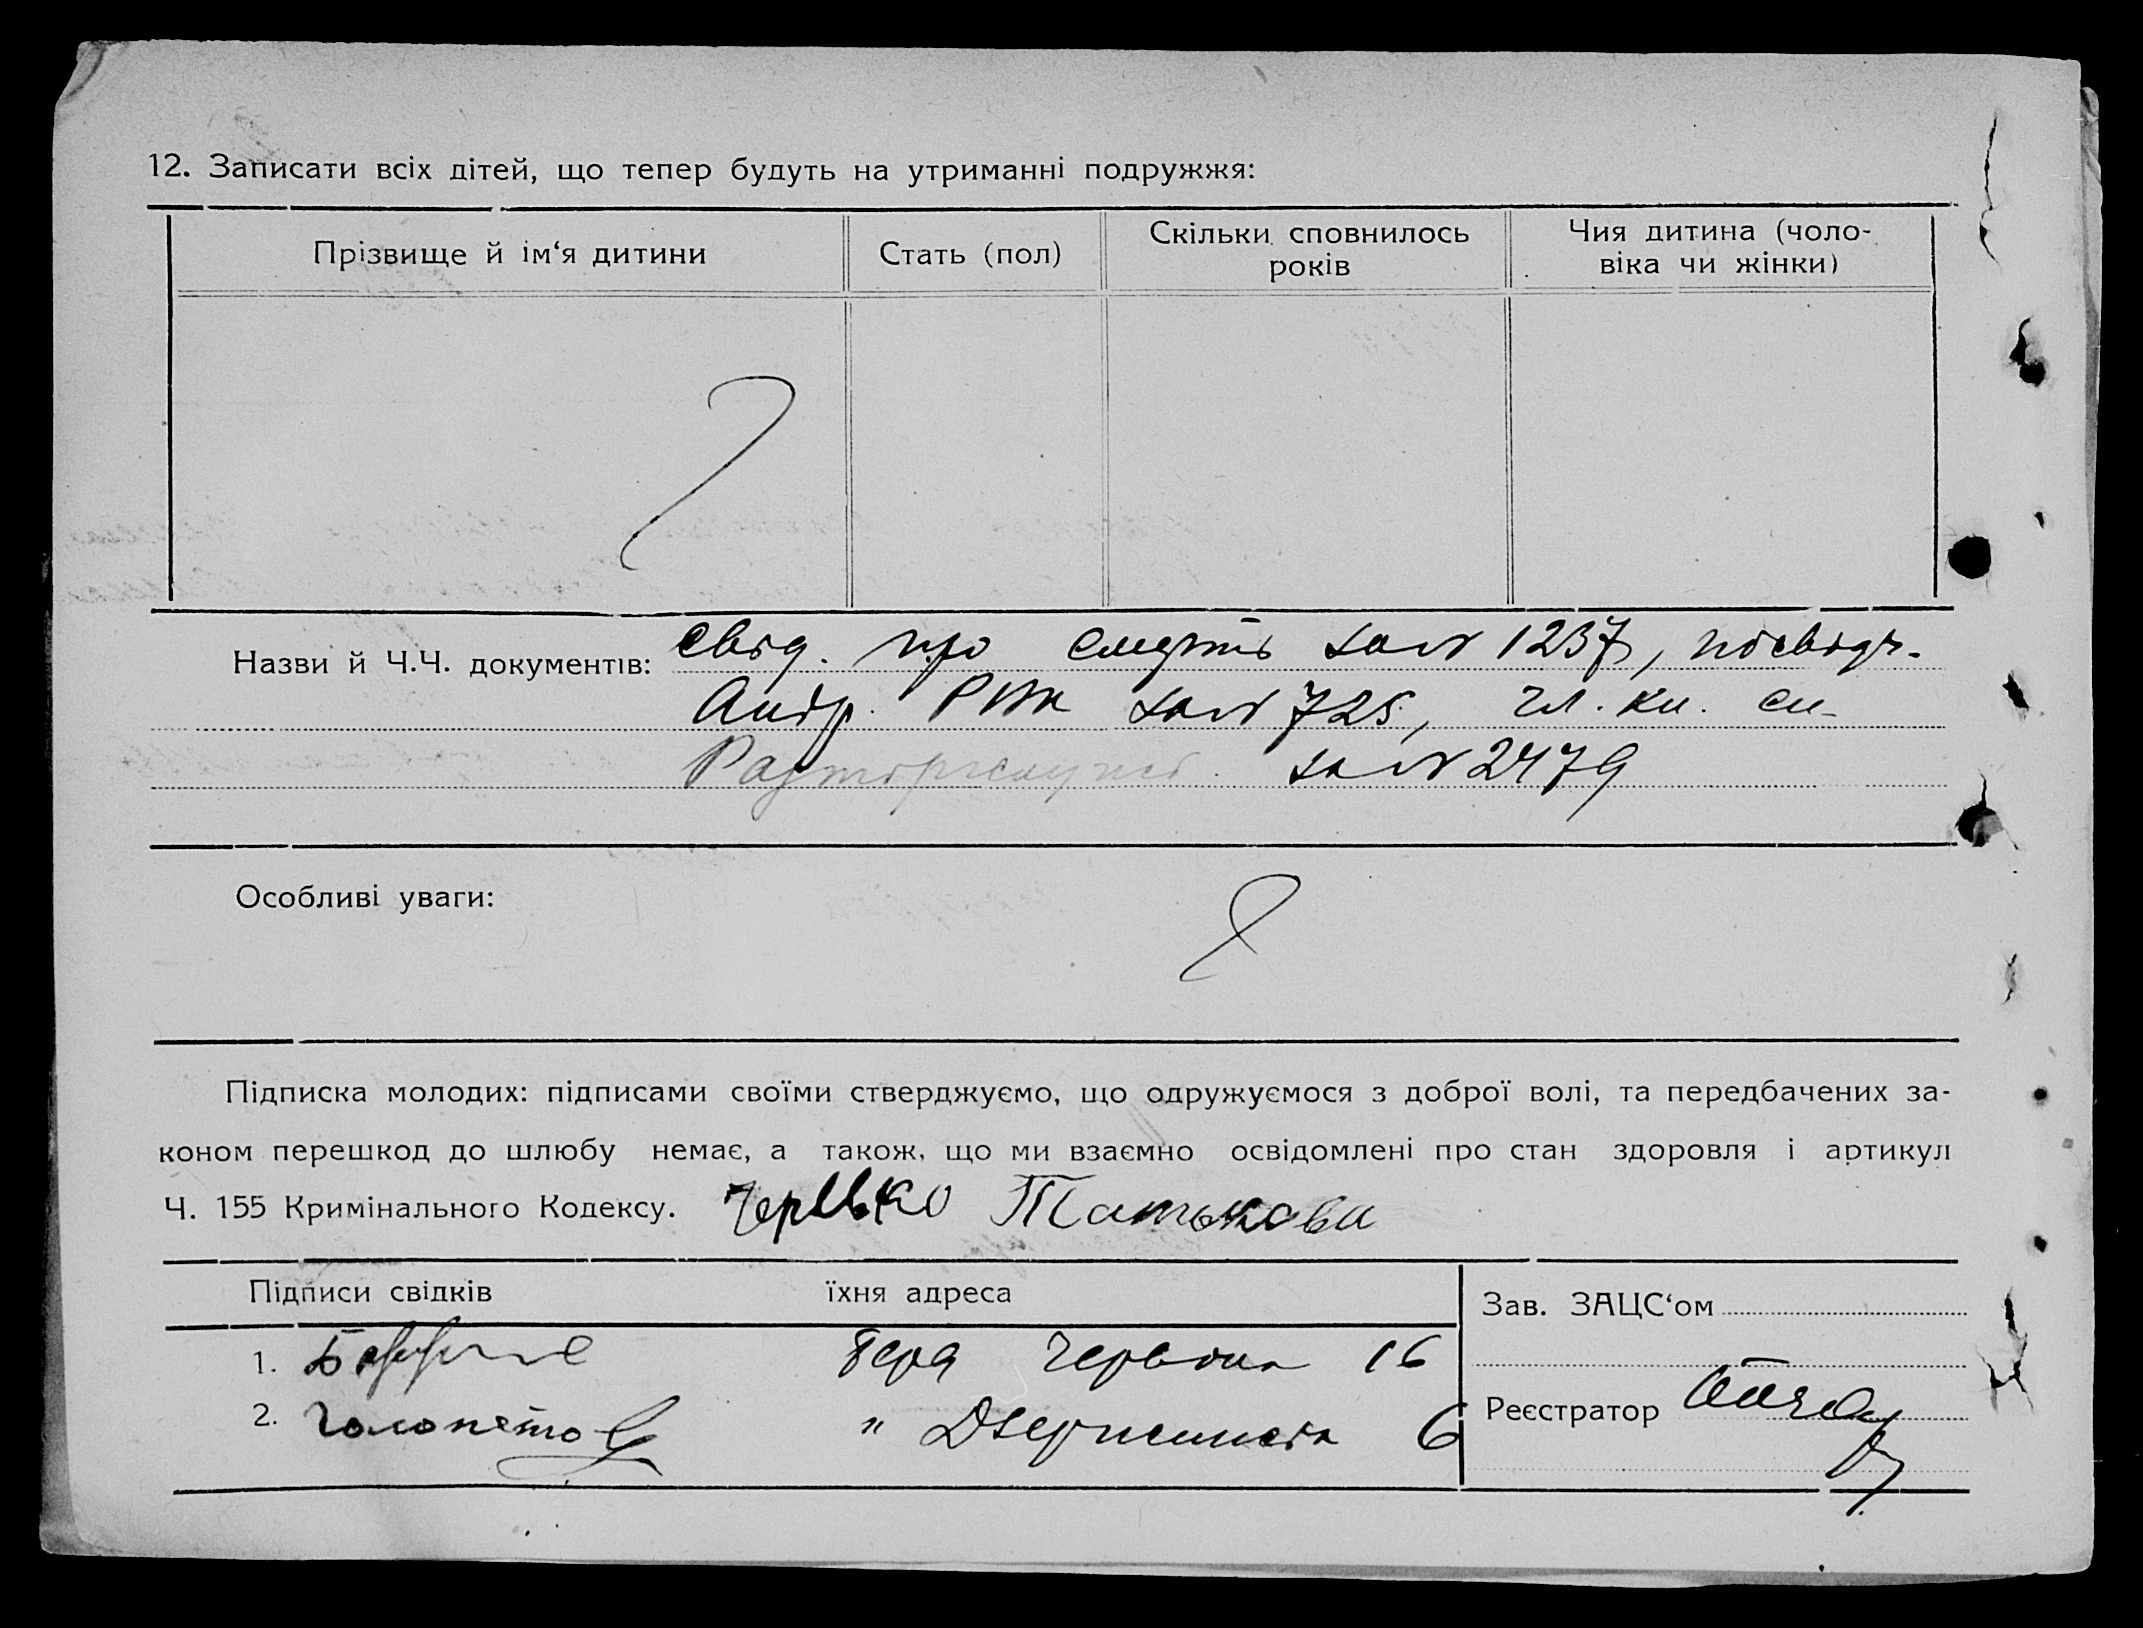 12. Записати всіх дітей, що тепер будуть на утриманні подружжя:
Прізвище й ім‘я дитини
Стать (пол)
Скільки сповнилось
років
Чия дитина (чоло-
віка чи жінки)
Назви й Ч.Ч. документів: свід. про смерть за № 1237, посвідч.
Андр. РВК за № 725, чл. кн.
за № 2479
Особливі уваги:
Підписка молодих: підписами своїми стверджуємо, що одружуємося з доброї волі, та передбачених за-
коном перешкод до шлюбу немає, а також, що ми взаємно освідомлені про стан здоровля і артикул
Ч. 155 Кримінального Кодексу.
Підписи свідків
їхня адреса
1. Червона 16
2. " 6
Зав. ЗАЦС‘ом
Реєстратор